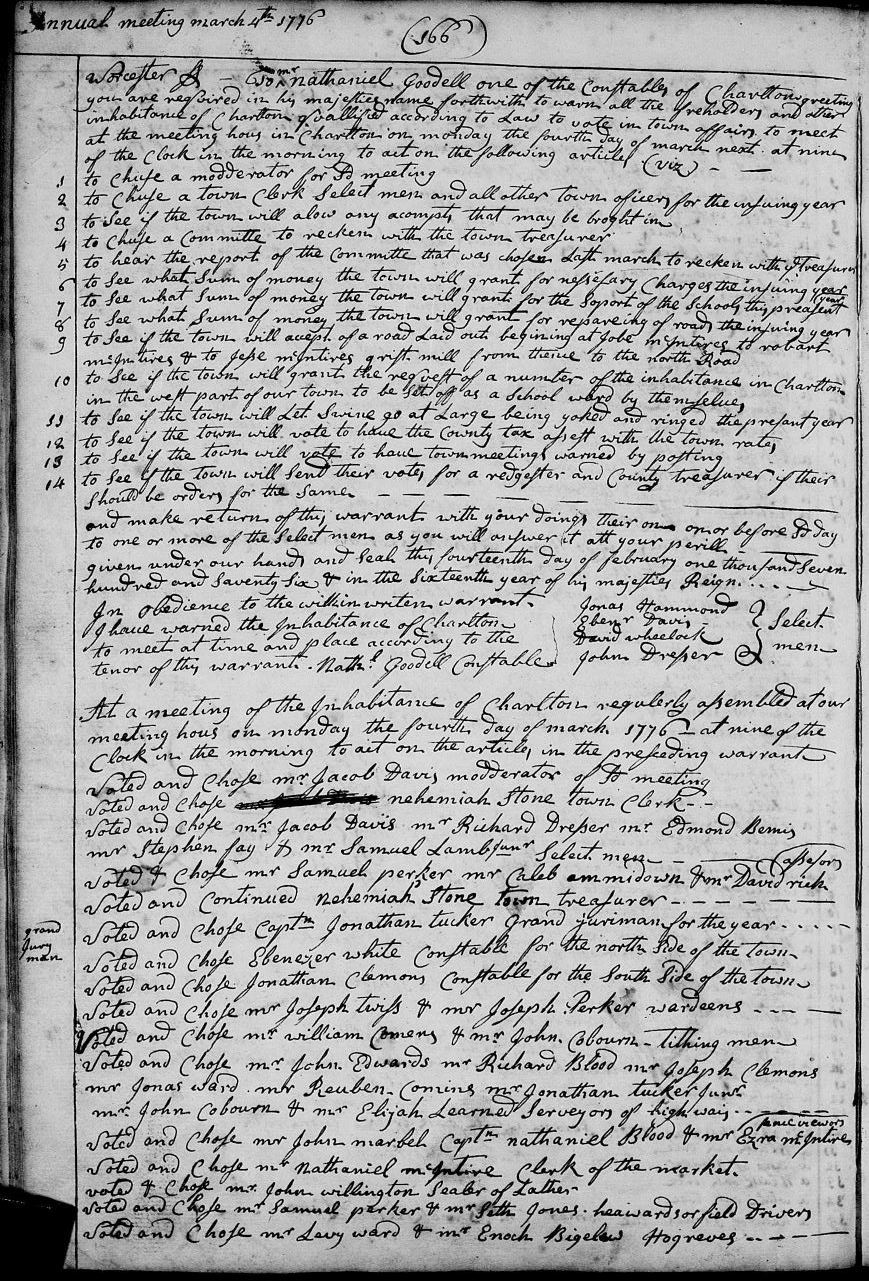 Annual meeting march 4th 1776
(166)
Worcester Ss - To mr nathaniel Goodell one of the Constables of Charlton greeting
you are reqsired in his majesties name forthwith to warn all the freholders and other
inhabitance of Charlton qvallified according to Law to vote in town affairs to meet
at the meeting hous in Charlton on monday the fourth day of march next at nine
of the Clock in the morning to act on the following articles (viz) - -
1 to Chuse a modderator for Sd meeting
2 to Chuse a town Clerk Select men and all other town oficers for the insuing year
3 to See if the town will alow any acompts that may be broght in
4 to Chuse a Committe to recken with the town treasurer
5 to hear the report of the Committe that was chosen Last march to recken with ye treasurer
6 to See what Sum of money the town will grant for nessesary Charges the insuing year
7 to See what Sum of money the town will grant for the Soport of the Schools this preasent year
8 to See what Sum of money the town will grant for repareing of roads the insuing year
9 to See if the town will acept of a road Laid out begining at Jobe mcIntires to robart
mcIntires & to Jesse mcIntires grist mill from thence to the north Road
10 to See if the town will grant the reqvest of a number of the inhabitance in Charlton
in the west part of our town to be Set off as a School ward by themselves
11 to See if the town will Let Swine go at Large being yoked and ringed the presant year
12 to See if the town will vote to have the County tax assest with the town rates
13 to See if the town will vote to have town meetings warned by posting
14 to See if the town will Send their votes for a redgester and County treasurer if their
Should be orders for the Same - - - - -
and make return of this warrant with your doings their on on or before Sd day
to one or more of the Select men as you will answer it att your perill
given under our hands and Seal this fourteenth day of february one thousand Seven
hundred and Saventy Six & in the Sixteenth year of his majesties Reign - - - -
In obedience to the within writen warrant
I have warned the Inhabitance of Charlton
to meet at time and place according to the
tenor of this warrant - Nathl Goodell Constable
Jonas Hammond
Ebenr Davis
David wheelock
John Dresser
Select
men
At a meeting of the Inhabitance of Charlton regulerly assembled at our
meeting hous on monday the fourth day of march 1776 at nine of the
Clock in the morning to act on the articles in the preseeding warrant
Voted and Chose mr Jacob Davis modderator of Sd meeting
Voted and Chose nehemiah Stone town Clerk - -
Voted and Chose mr Jacob Davis mr Richard Dresser mr Edmond Bemis
mr Stephen fay & mr Samuel Lamb Junr Select men -
Voted & Chose mr Samuel perker mr Caleb ammidown & mr David rich assesors
Voted and Continued nehemiah Stone town treasurer - - - - -
grand
Jury
man
Voted and Chose Captn Jonathan tucker grand juriman for the year - - - - -
Voted and Chose Ebenezer white Constable for the north Side of the town
Voted and Chose Jonathan Clemons Constable for the South Side of the town
Voted and Chose mr Joseph twiss & mr Joseph Perker wardeens - - - -
Voted and Chose mr william Comens & mr John Cobourn - tithing men
Voted and Chose mr John Edwards mr Richard Blood mr Joseph Clemons
mr Jonas ward mr Reuben Comins mr Jonathan tucker Junr
mr John Cobourn & mr Elijah Learned Serveyors of high ways - - - - -
Voted and Chose mr John marbeh Captn nathaniel Blood & mr Ezra mcIntire fence viewors
Voted and Chose mr Nathaniel mcIntire Clerk of the market.
voted & Chose mr John willington Sealer of Lather
Voted and Chose mr Samuel parker & mr Seth Jones heaiwards or field Drivers
Voted and Chose mr Levy ward & mr Enoch Bigelew Hogreves - - - -